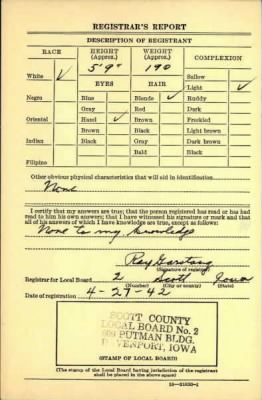 REGISTRAR'S REPORT
DESCRIPTION OF REGISTRANT
RACE HEIGHT (Approx.) WEIGHT (Approx.) COMPLEXION
5' 9" 190 Sallow
White ✓ EYES HAIR Light ✓
Negro Blue Blonde ✓ Ruddy
Gray Red Dark
Oriental Hazel ✓ Brown Freckled
Brown Black Light brown
Indian Black Gray Dark brown
Bald Black
Filipino
Other obvious physical characteristics that will aid in identification
None
I certify that my answers are true; that the person registered has read or has had
read to him his own answers; that I have witnessed his signature or mark and that
all of his answers of which I have knowledge are true, except as follows:
None to my knowledge
Ray
(Signature of registrar)
Registrar for Local Board 2 Scott Iowa
(Number) (City or county) (State)
Date of registration 4-27-42
SCOTT COUNTY
LOCAL BOARD No. 2
PUTMAN BLDG.
DAVENPORT, IOWA
(STAMP OF LOCAL BOARD)
(The stamp of the Local Board having jurisdiction of the registrant
shall be placed in the above space.)